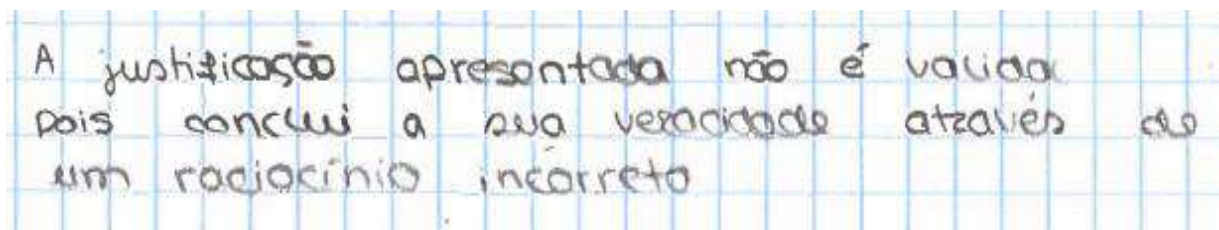 A justificação apresentada não é valida
pois conclui a sua veracidade através de
um raciocínio incorreto